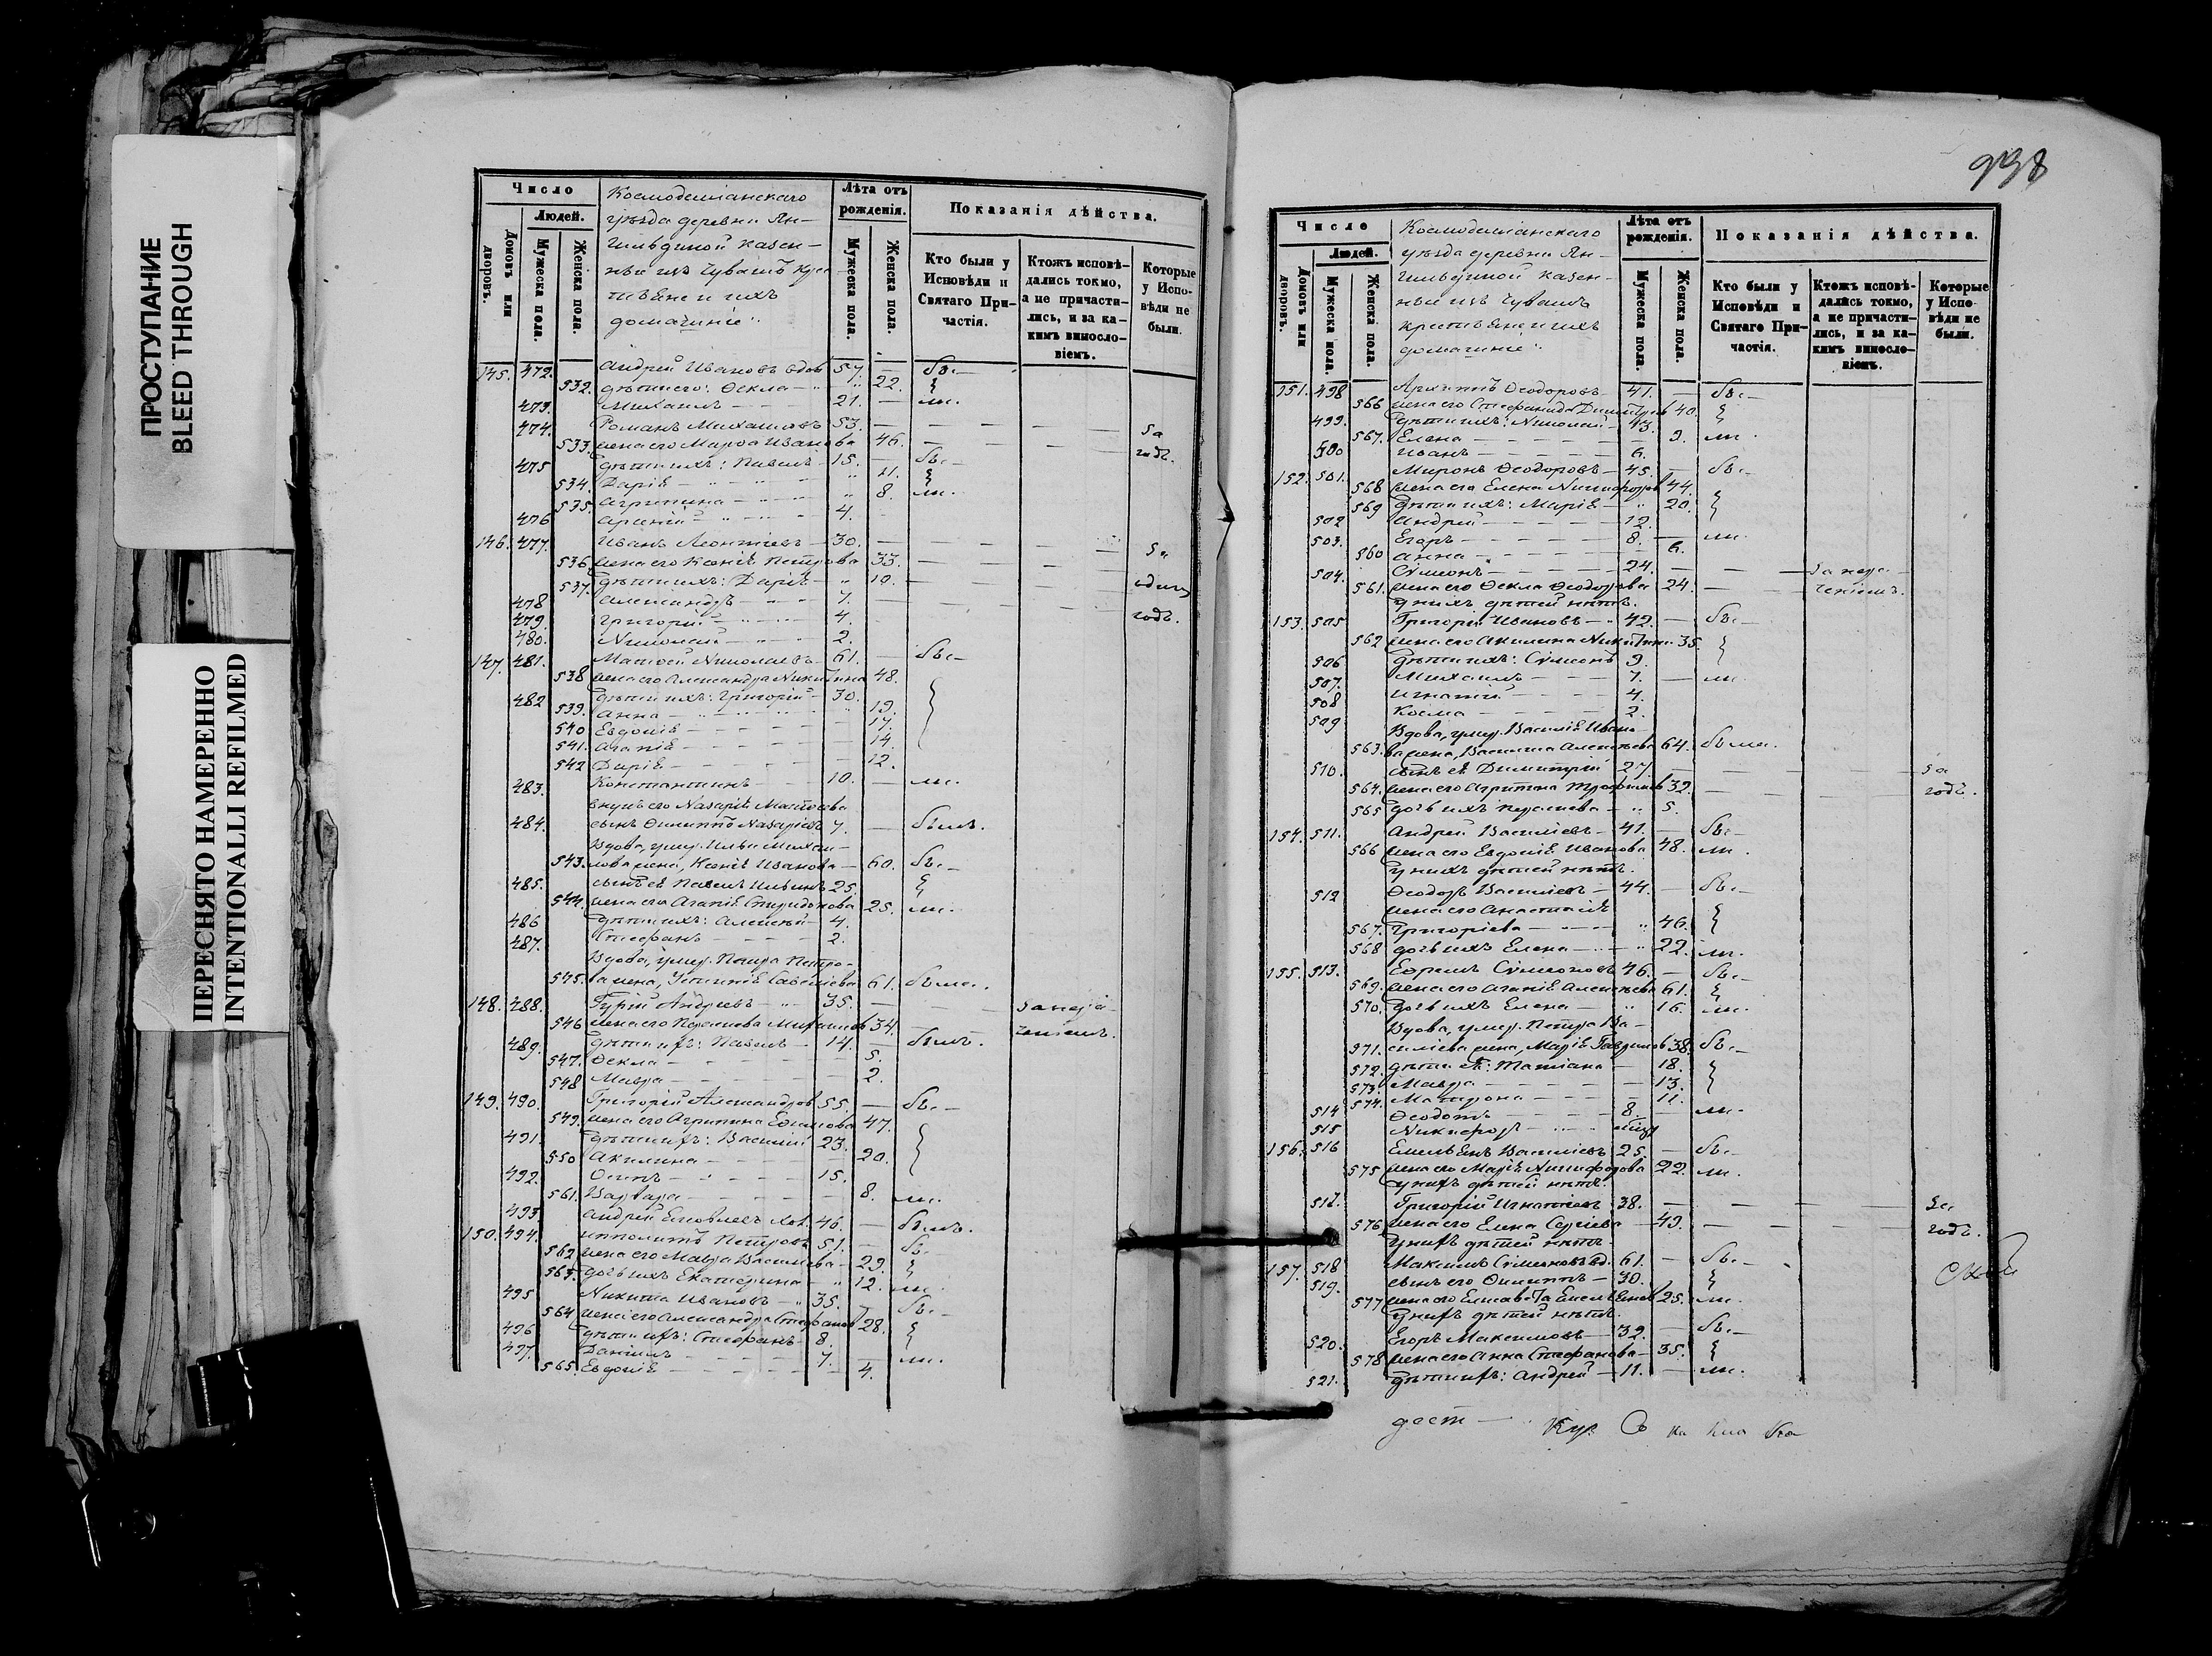 ПРОСТУПАНИЕ
BLEED THROUGH
ПЕРЕСНЯТО НАМЕРЕННО
INTENTIONALLI REFILMED
Число
Людей.
Домовъ или дворовъ.
Мужеска пола.
Женска пола.
Космодеміанскаго
уѣзда деревни Ян-
гильдиной казен-
ные изъ Чувашъ кре-
стьяне и ихъ
домашніе:
Лѣта отъ рожденія.
Мужеска пола.
Женска пола.
Показанія дѣйства.
Кто были у Исповѣди и Святаго При-частія.
Ктожъ исповѣ-дались токмо, а не причасти-лись, и за ка-кимъ виносло-віемъ.
Которые у Испо-вѣди не были.
145. 472. Андрей Ивановъ вдов 57. — бы-
532. дѣти его: Ѳекла — 22.
473. Михаилъ — 21. — ли.
474. Романъ Михайловъ 53. — за
533. жена его Марѳа Иванова 46. — годъ.
475 дѣти ихъ: Павелъ — 15. — бы-
534. Дарія — 11.
535. Агрипина — 8. ли.
476 Арсеній — 4.
146. 477. Иванъ Леонтіевъ — 30. — за
536. жена его Ксенія Петрова 33. —
537. дѣти ихъ: Дарія — 10. — один
478 Александръ — 7. —
479. Григорій — 4. годъ.
480. Николай — 2.
147. 481. Матѳей Николаевъ — 61. — бы-
538 жена его Александра Никитина 48.
482 дѣти ихъ: Григорій — 30.
539. Анна — 19.
540 Евдокія — 17.
541. Агапія — 14.
542 Дарія — 12.
483. Константинъ — 10. — ли.
внукъ его Назарія Матѳеева
484. сынъ Филиппъ Назаріевъ 7. — былъ.
Вдова, умер. Ильи Михаи-
543. лова жена, Ксенія Иванова — 60. бы-
485. сынъ ея Павелъ Ильинъ 25.
544. жена его Агапія Спиридонова 25. ли.
486 дѣти ихъ: Алексѣй — 4.
487. Стефанъ — 2.
Вдова, умер. Петра Петро-
545. ва жена, Устинія Савельева 61. была.
148. 488. Гурій Андреевъ — 35. — за нера-
546 жена его Параскева 34. — ченіемъ.
489. дѣти ихъ: Павелъ — 14. — былъ.
547. Ѳекла — 5.
548 Мавра — 2.
149. 490. Григорій Александров 55. — бы-
549. жена его Агрипина Ефимова 47.
491. дѣти ихъ: Василій 23.
550 Акилина — 20.
492. Осипъ — 15.
561. Варвара — 8. ли.
493 Андрей 46. — былъ.
150. 494. Ипполитъ Петровъ 51. — бы-
562 жена его Мавра Васильева — 29.
563. дочь ихъ Екатерина — 12. ли.
495 Никита Ивановъ — 35. — бы-
564 жена его Александра Стефанов 28.
496 дѣти ихъ: Стефанъ — 8.
497. Даніилъ — 7. — ли.
565. Евдокія — 4.
938
Число
Людей.
Домовъ или дворовъ.
Мужеска пола.
Женска пола.
Космодеміанскаго
уѣзда деревни Ян-
гильдиной казен-
ные изъ Чувашъ
крестьяне и ихъ
домашніе:
Лѣта отъ рожденія.
Мужеска пола.
Женска пола.
Показанія дѣйства.
Кто были у Исповѣди и Святаго При-частія.
Ктожъ исповѣ-дались токмо, а не причасти-лись, и за ка-кимъ виносло-віемъ.
Которые у Испо-вѣди не были.
151. 498 Архиппъ Ѳеодоровъ — 41. — бы-
566 жена его Стефанида 40.
499. дѣти ихъ: Николай — 13.
567. Елена — 9. ли.
500 Иванъ — 6.
152. 501. Миронъ Ѳеодоровъ — 45. — бы-
568 жена его Елена Никифоров 44.
569 дѣти ихъ: Марія — 20.
502 Андрей — 12.
503. Егоръ — 8. — ли.
560 Анна — 6.
504. Сѵмеонъ — 24. — за нера-
561. жена его Ѳекла Ѳеодорова 24. — ченіемъ.
у нихъ дѣтей нѣтъ.
153. 505 Григорій Ивановъ — 42. — бы-
562 жена его Акилина Никитина 35.
506 дѣти ихъ: Сѵмеонъ 9.
507. Михаилъ — 7. — ли.
508 Игнатій — 4.
509 Косма — 2.
Вдова, умер. Василія Ивано-
563. ва жена, Васлиса Алексѣева 64. была.
510. сынъ ея Димитрій 27. — за
564. жена его Агрипина Трофимов 32. — годъ.
565 дочь ихъ Параскева — 5.
154. 511. Андрей Василіевъ — 41. — бы-
566 жена его Евдокія Иванова 48. ли.
у нихъ дѣтей нѣтъ.
512 Ѳеодоръ Василіевъ — 44. — бы-
жена его Анастасія
567. Григоріева — 46.
568 дочь ихъ Елена — 22. ли.
155. 513. Ефремъ Сѵмеоновъ 46. — бы-
569. жена его Агапія Алексѣева 61.
570. дочь ихъ Елена — 16. ли.
Вдова, умер. Петра Ва-
571. силіева жена, Марія Гаврилов 38. бы-
572. дѣти ея: Татіана — 18.
573. Мавра — 13.
574. Матрона — 11.
514 Ѳеодотъ — 8. — ли.
515 Никифоръ —
156. 516 Емельянъ Василіевъ 25. — бы-
575 жена его Марія Никифорова 22. ли.
у нихъ дѣтей нѣтъ.
517. Григорій Игнатіевъ 38. — за
576 жена его Елена Сергіева — 49. — годъ.
у нихъ дѣтей нѣтъ.
157. 518 Максимъ Сѵмеоновъ вд. 61. — бы-
519. сынъ его Филиппъ — 30.
577 жена его Елисавета Емельянов 25. ли.
у нихъ дѣтей нѣтъ.
520. Егоръ Максимовъ — 32. — бы-
578 жена его Анна Стефанова — 35.
521. дѣти ихъ: Андрей — 11. — ли.